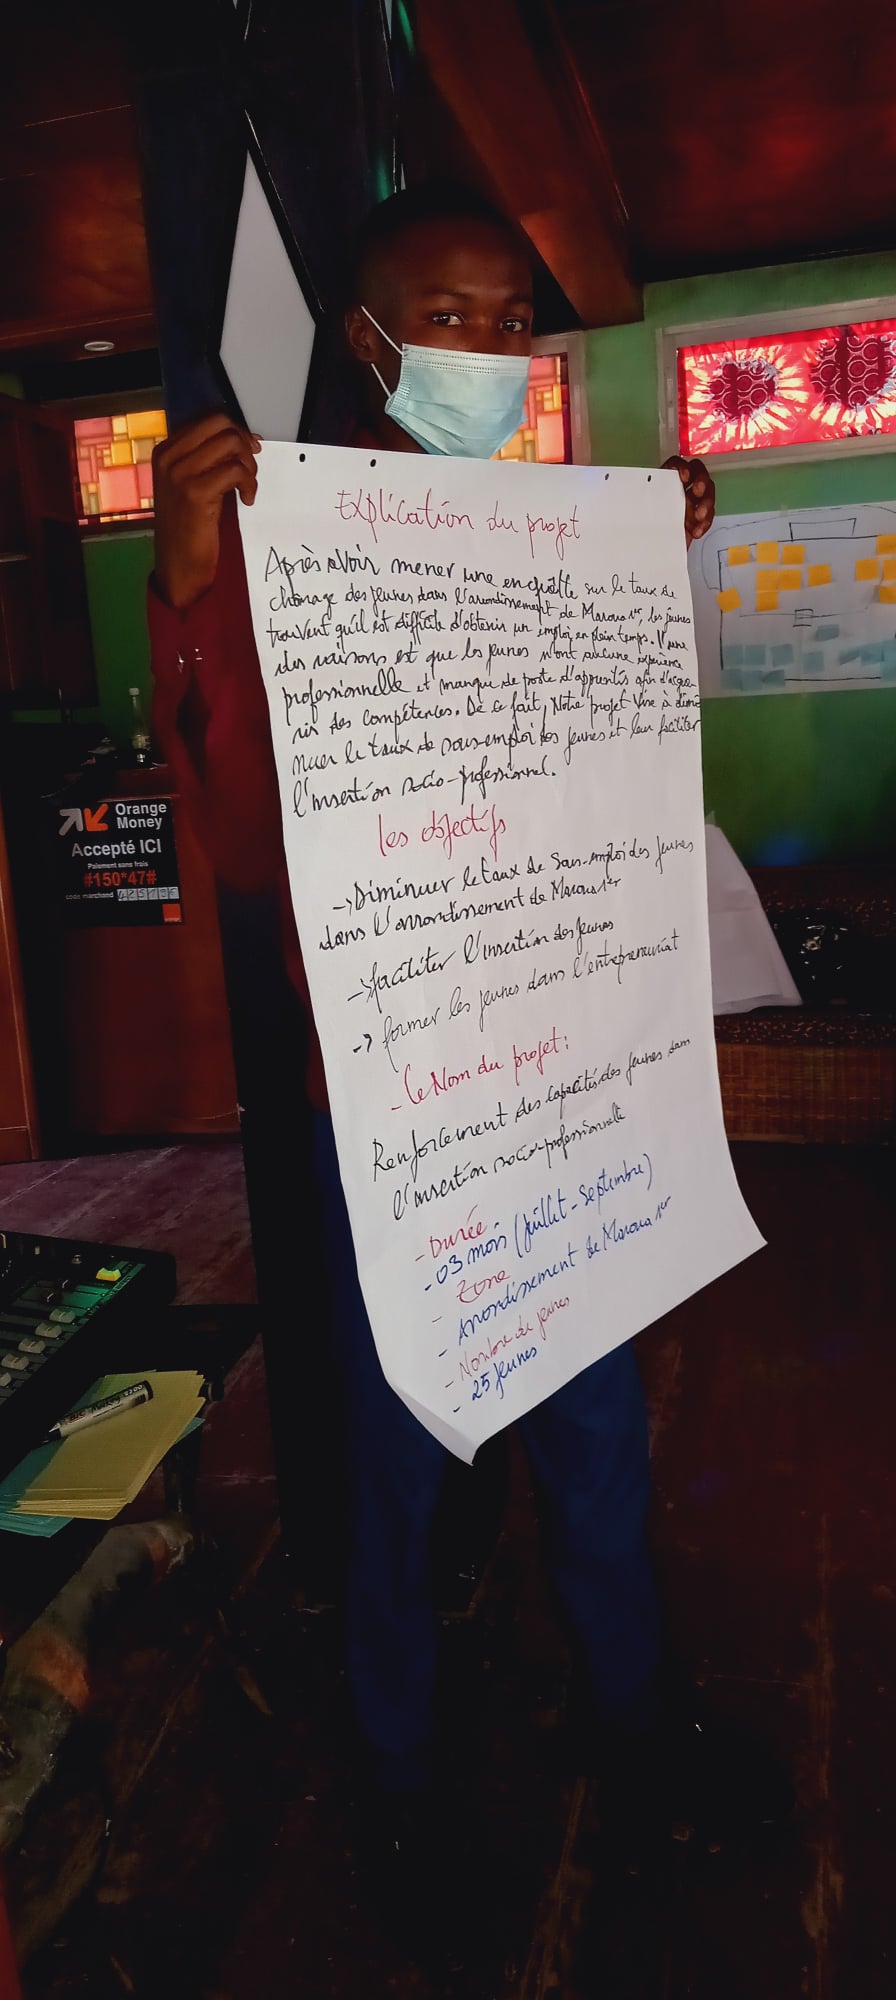 Explication du projet
Après avoir mener une enquêtte sur le taux de
chômage des jeunes dans l'arrondissement de Maroua 1er, les jeunes
trouvent qu'il est difficile d'obtenir un emploi en plein temps. L'une
des raisons est que les jeunes n'ont aucune expérience
professionnelle et manque de poste d'apprentis afin d'acqué
rir des compétences. De ce fait, Notre projet vise à dimi
nuer le taux de sous-emploi des jeunes et leur faciliter
l'insertion socio-professionnel.
les objectifs
-> Diminuer le taux de sous-emploi des jeunes
dans l'arrondissement de Maroua 1er
-> faciliter l'insertion des jeunes
-> former les jeunes dans l'entrepreneuriat
- Le Nom du projet :
Renforcement des capacités des jeunes dans
l'insertion socio-professionnelle
- Durée
- 03 mois (juillet - septembre)
- Zone
- Arrondissement de Maroua 1er
- Nombre de jeunes
- 25 jeunes
Orange
Money
Accepté ICI
Paiement sans frais
#150*47#
code marchand
orange